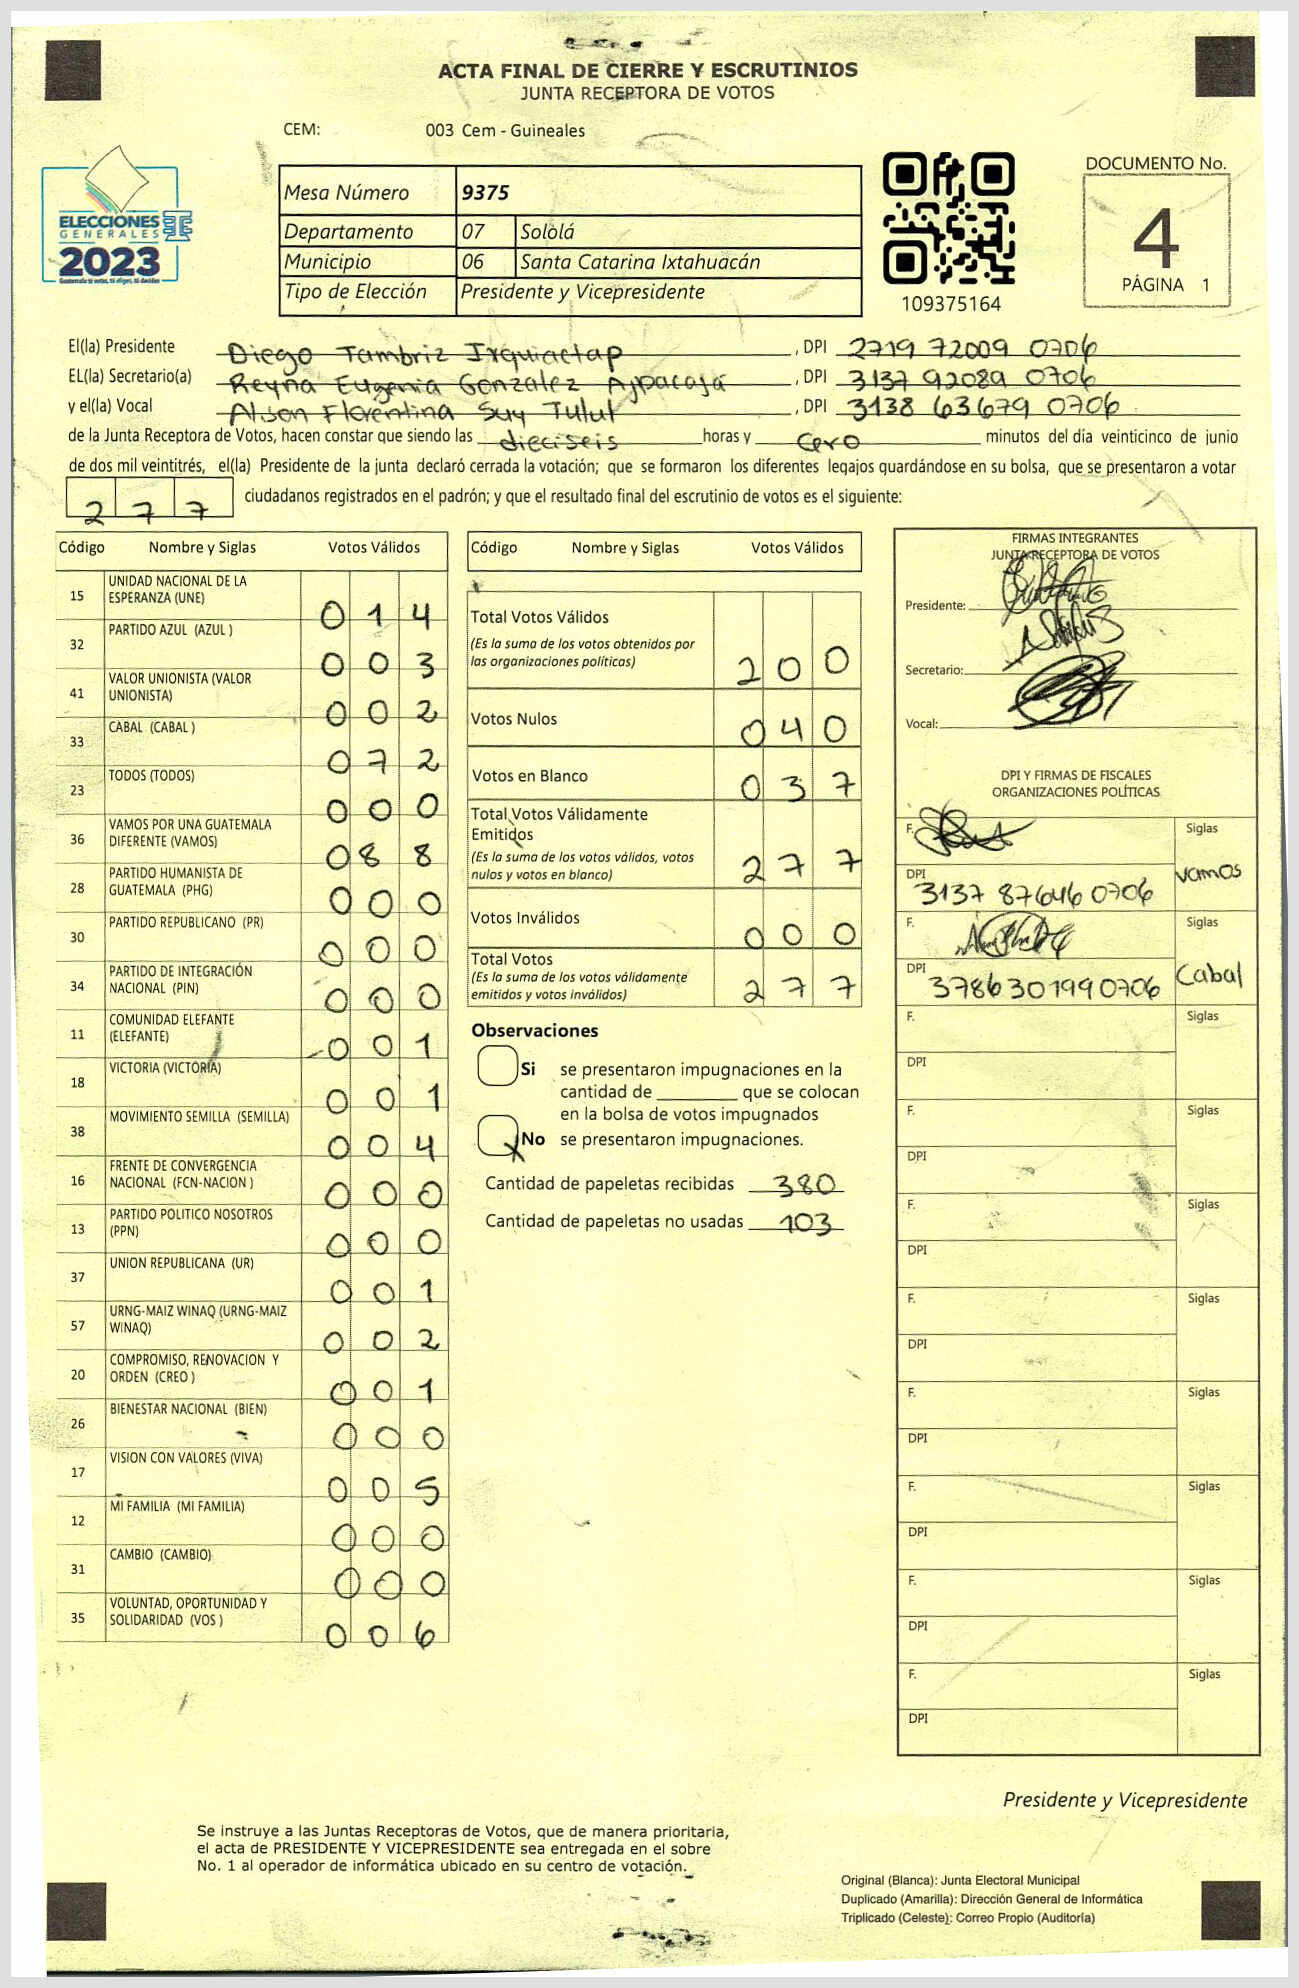 ACTA FINAL DE CIERRE Y ESCRUTINIOS
JUNTA RECEPTORA DE VOTOS
CEM: 003 Cem - Guineales
ELECCIONES
GENERALES
2023
Guatemala tú votas, tú eliges, tú decides
Mesa Número 9375
Departamento 07 Sololá
Municipio 06 Santa Catarina Ixtahuacán
Tipo de Elección Presidente y Vicepresidente
109375164
DOCUMENTO No.
4
PÁGINA 1
El(la) Presidente Diego Tambriz Ixquiactap, DPI 2719 72009 0706
EL(la) Secretario(a) Reyna Eugenia Gonzalez Ajpacajá, DPI 3137 92089 0706
y el(la) Vocal Alison Florentina Suy Tulul, DPI 3138 63679 0706
de la Junta Receptora de Votos, hacen constar que siendo las dieciseis horas y cero minutos del día veinticinco de junio
de dos mil veintitrés, el(la) Presidente de la junta declaró cerrada la votación; que se formaron los diferentes legajos guardándose en su bolsa, que se presentaron a votar
277 ciudadanos registrados en el padrón; y que el resultado final del escrutinio de votos es el siguiente:
Código Nombre y Siglas Votos Válidos
15 UNIDAD NACIONAL DE LA ESPERANZA (UNE) 014
32 PARTIDO AZUL (AZUL ) 003
41 VALOR UNIONISTA (VALOR UNIONISTA) 002
33 CABAL (CABAL ) 072
23 TODOS (TODOS) 000
36 VAMOS POR UNA GUATEMALA DIFERENTE (VAMOS) 088
28 PARTIDO HUMANISTA DE GUATEMALA (PHG) 000
30 PARTIDO REPUBLICANO (PR) 000
34 PARTIDO DE INTEGRACIÓN NACIONAL (PIN) 000
11 COMUNIDAD ELEFANTE (ELEFANTE) 001
18 VICTORIA (VICTORIA) 001
38 MOVIMIENTO SEMILLA (SEMILLA) 004
16 FRENTE DE CONVERGENCIA NACIONAL (FCN-NACION ) 000
13 PARTIDO POLITICO NOSOTROS (PPN) 000
37 UNION REPUBLICANA (UR) 001
57 URNG-MAIZ WINAQ (URNG-MAIZ WINAQ) 002
20 COMPROMISO, RENOVACION Y ORDEN (CREO ) 001
26 BIENESTAR NACIONAL (BIEN) 000
17 VISION CON VALORES (VIVA) 005
12 MI FAMILIA (MI FAMILIA) 000
31 CAMBIO (CAMBIO) 000
35 VOLUNTAD, OPORTUNIDAD Y SOLIDARIDAD (VOS ) 006
Código Nombre y Siglas Votos Válidos
Total Votos Válidos
(Es la suma de los votos obtenidos por las organizaciones políticas) 200
Votos Nulos 040
Votos en Blanco 037
Total Votos Válidamente Emitidos
(Es la suma de los votos válidos, votos nulos y votos en blanco) 277
Votos Inválidos 000
Total Votos
(Es la suma de los votos válidamente emitidos y votos inválidos) 277
Observaciones
Si se presentaron impugnaciones en la
cantidad de ________ que se colocan
en la bolsa de votos impugnados
X No se presentaron impugnaciones.
Cantidad de papeletas recibidas 380
Cantidad de papeletas no usadas 103
FIRMAS INTEGRANTES
JUNTA RECEPTORA DE VOTOS
Presidente:
Secretario:
Vocal:
DPI Y FIRMAS DE FISCALES
ORGANIZACIONES POLÍTICAS
F. Siglas
DPI 3137 87646 0706 vamos
F. Siglas
DPI 3786 30199 0706 Cabal
F. Siglas
DPI
F. Siglas
DPI
F. Siglas
DPI
F. Siglas
DPI
F. Siglas
DPI
F. Siglas
DPI
F. Siglas
DPI
F. Siglas
DPI
Presidente y Vicepresidente
Se instruye a las Juntas Receptoras de Votos, que de manera prioritaria,
el acta de PRESIDENTE Y VICEPRESIDENTE sea entregada en el sobre
No. 1 al operador de informática ubicado en su centro de votación.
Original (Blanca): Junta Electoral Municipal
Duplicado (Amarilla): Dirección General de Informática
Triplicado (Celeste): Correo Propio (Auditoría)